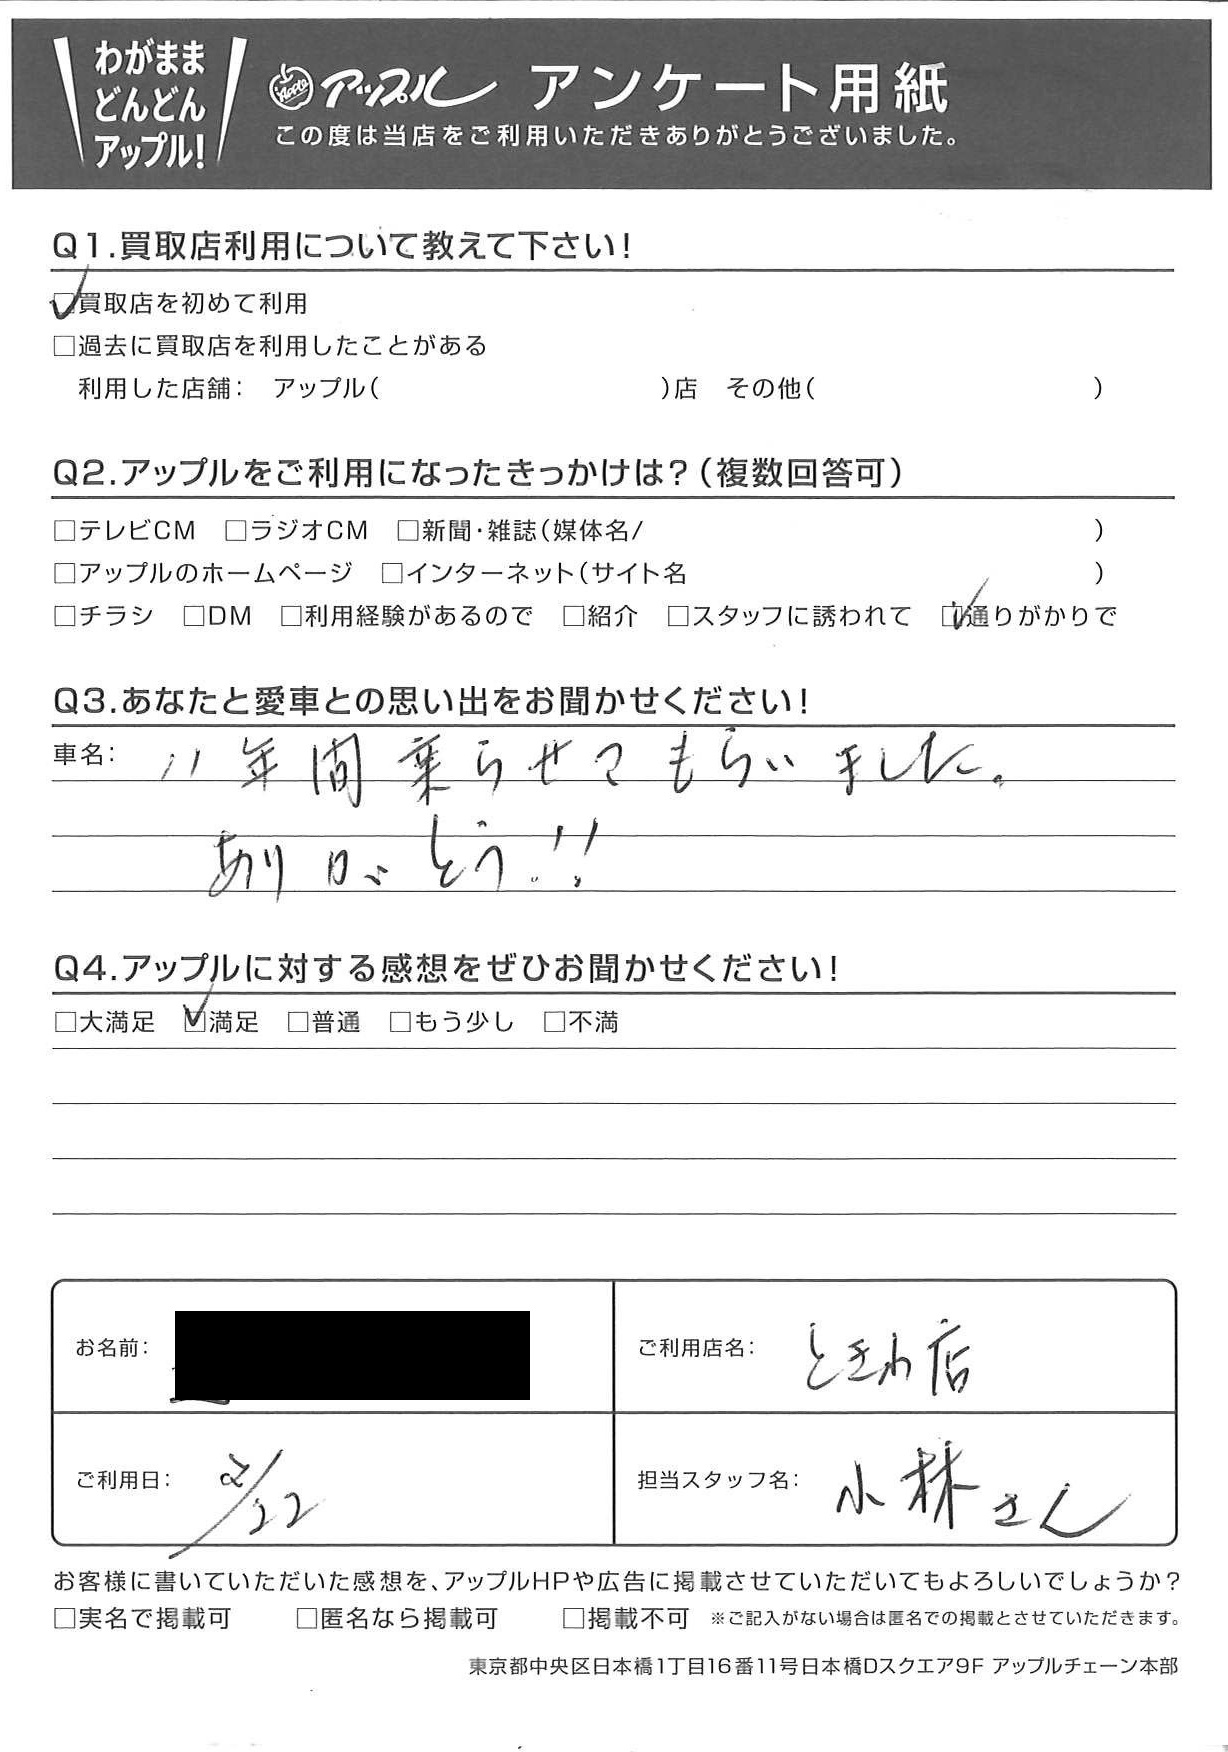 わがまま
どんどん
アップル!
Apple アップル アンケート用紙
この度は当店をご利用いただきありがとうございました。
Q1.買取店利用について教えて下さい!
☑買取店を初めて利用
□過去に買取店を利用したことがある
利用した店舗: アップル( )店 その他( )
Q2.アップルをご利用になったきっかけは?(複数回答可)
□テレビCM □ラジオCM □新聞・雑誌(媒体名/ )
□アップルのホームページ □インターネット(サイト名 )
□チラシ □DM □利用経験があるので □紹介 □スタッフに誘われて ☑通りがかりで
Q3.あなたと愛車との思い出をお聞かせください!
車名: 11年間乗らせてもらいました。
ありがとう!!
Q4.アップルに対する感想をぜひお聞かせください!
□大満足 ☑満足 □普通 □もう少し □不満
お名前:
ご利用店名: ときわ店
ご利用日: 2/22
担当スタッフ名: 小林さん
お客様に書いていただいた感想を、アップルHPや広告に掲載させていただいてもよろしいでしょうか?
□実名で掲載可 □匿名なら掲載可 □掲載不可 ※ご記入がない場合は匿名での掲載とさせていただきます。
東京都中央区日本橋1丁目16番11号日本橋Dスクエア9F アップルチェーン本部